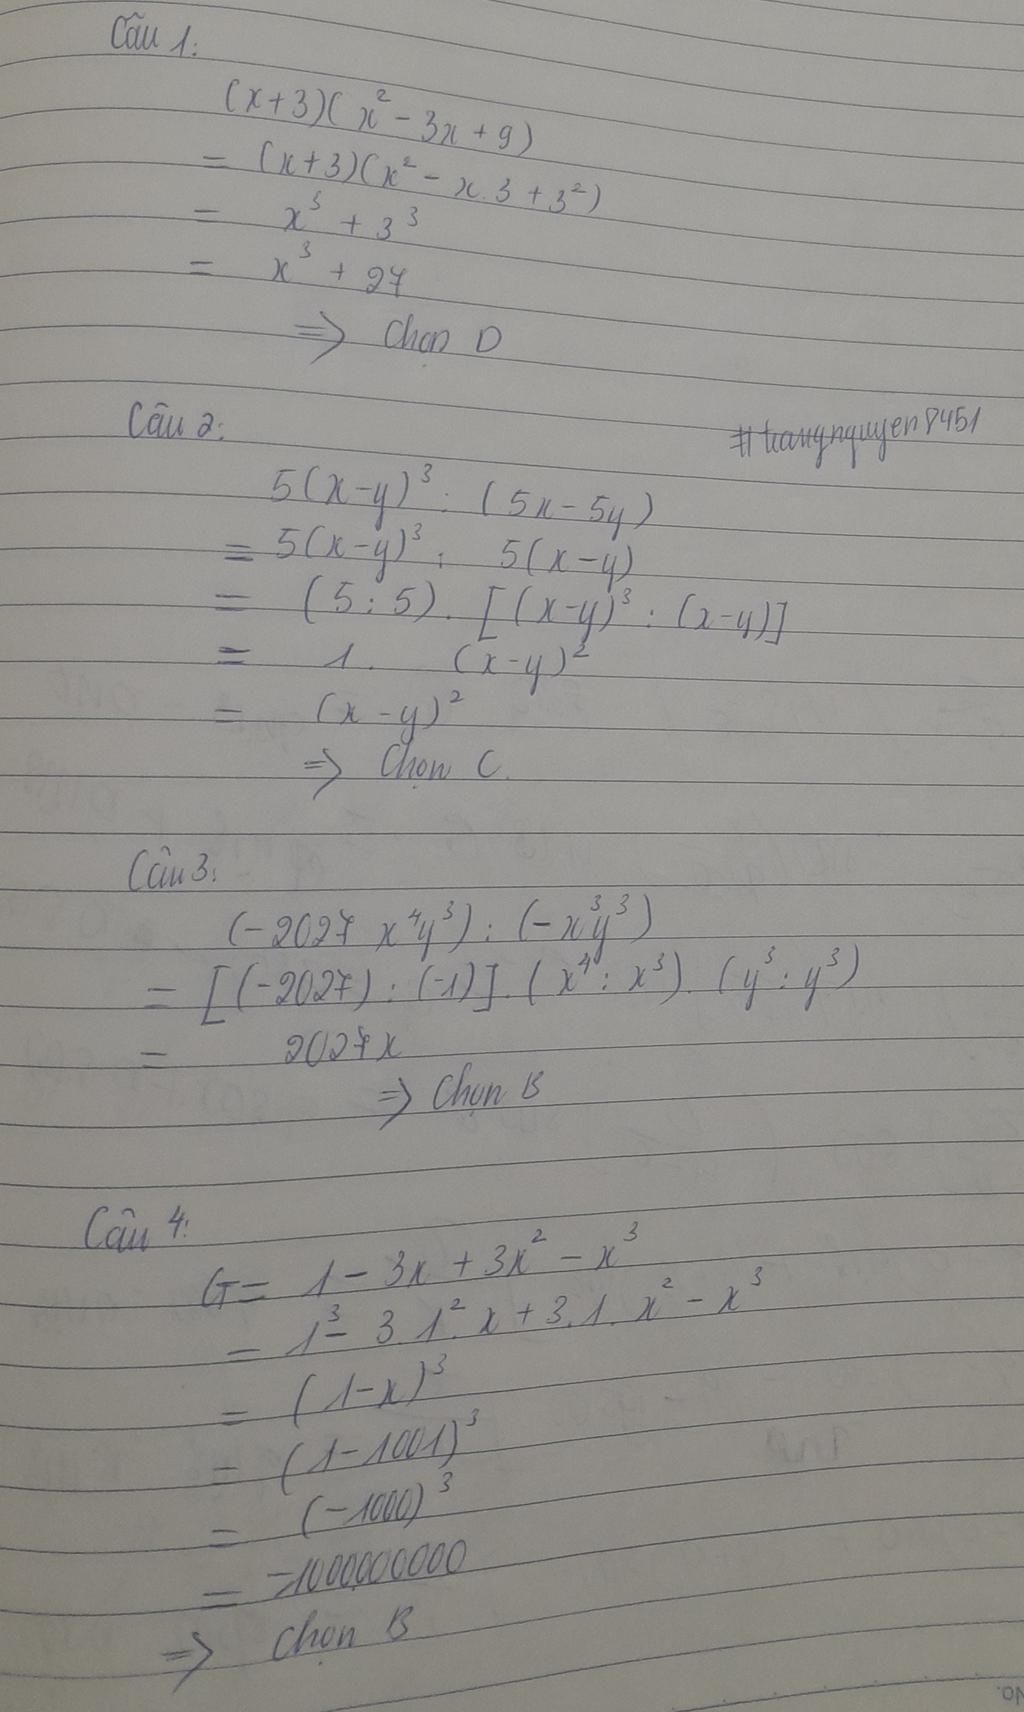 Câu 1:
(x+3)(x² - 3x + 9)
= (x+3)(x² - x.3 + 3²)
= x³ + 3³
= x³ + 27
=> Chọn D
Câu 2:
#trangnguyen8451
5(x-y)³ : (5x - 5y)
= 5(x-y)³ : 5(x-y)
= (5:5). [(x-y)³ : (x-y)]
= 1. (x-y)²
= (x-y)²
=> Chọn C.
Câu 3:
(-2027 x⁴y³) : (-x³y³)
= [(-2027) : (-1)]. (x⁴ : x³). (y³ : y³)
= 2027x
=> Chọn B
Câu 4:
G = 1 - 3x + 3x² - x³
= 1³ - 3.1².x + 3.1.x² - x³
= (1-x)³
= (1-1001)³
= (-1000)³
= -1000000000
=> Chọn B
No.